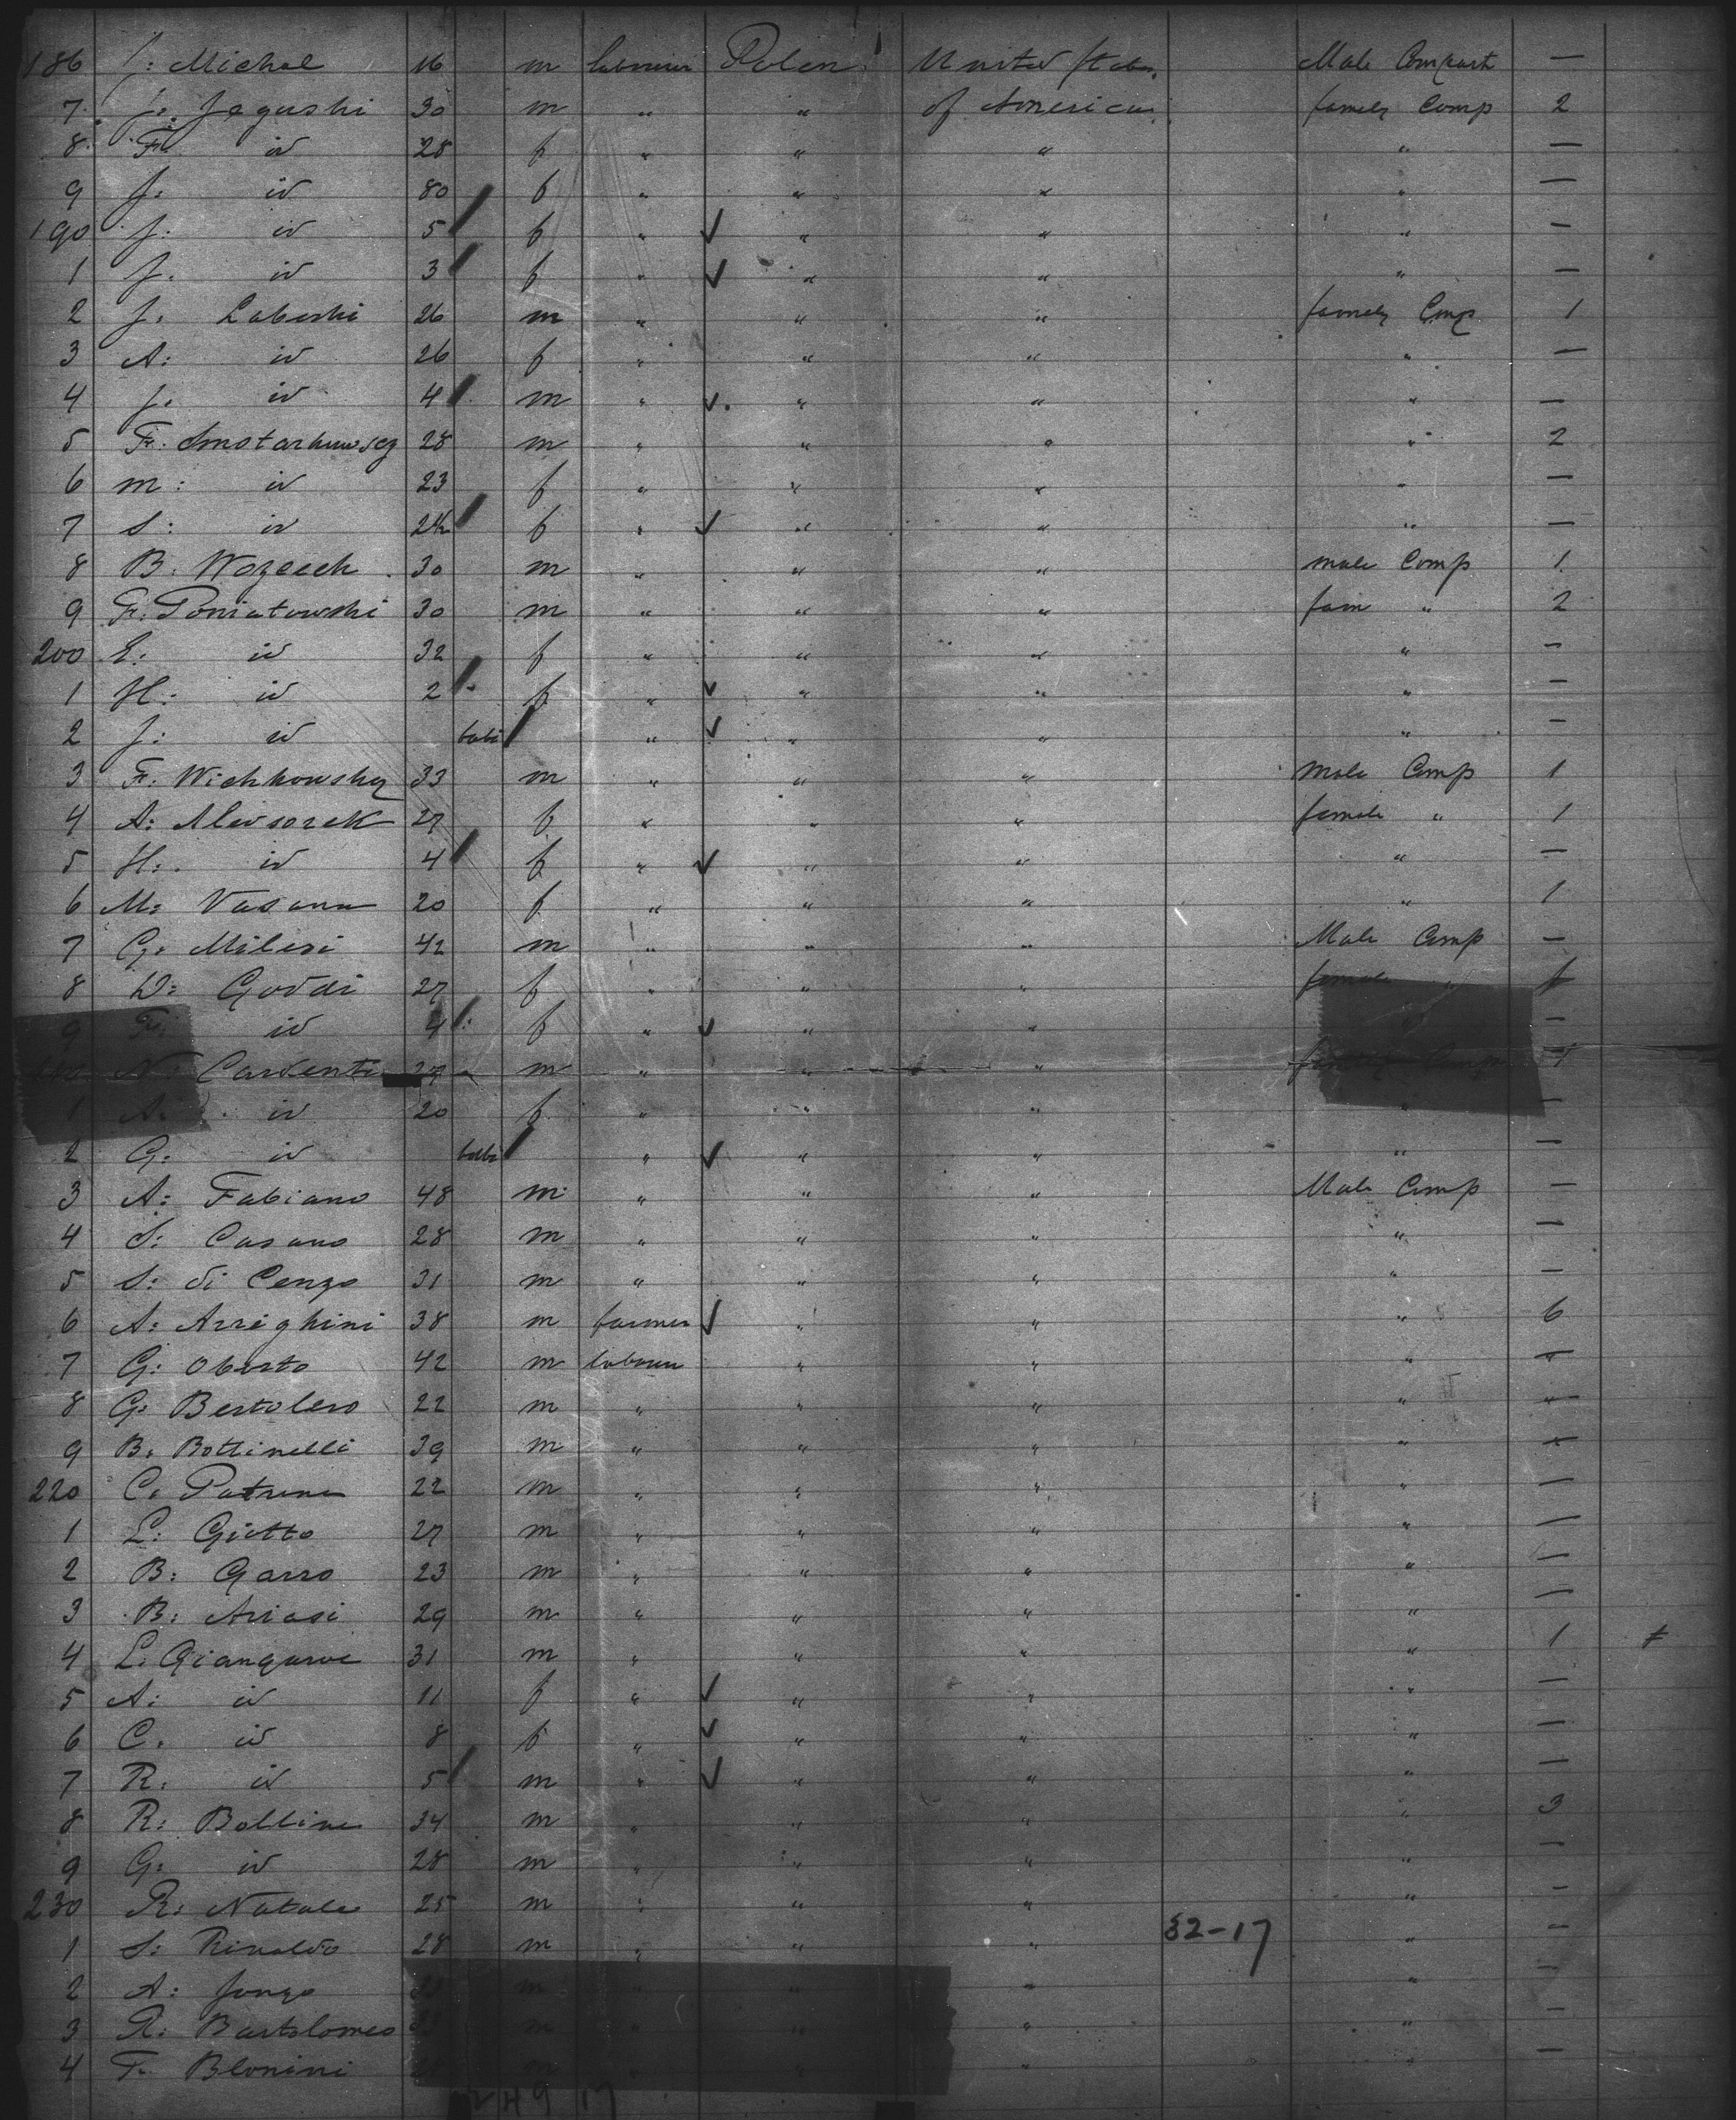 186 J: Michal 16 m labourer Polen United States Male Compart —
7 J: Jaguski 30 m " " of America family Comp 2
8 F: id 28 f " " " " —
9 J: id 80 f " " " " —
190 J: id 5 f " ✓ " " " —
1 J. id 3 f " ✓ " " " —
2 J: Laboski 26 m " " " family Comp 1
3 A: id 26 f " " " " —
4 J. id 4 m " ✓ " " " —
5 Fr. Smotarhuwscy 28 m " " " " 2
6 M: id 23 f " " " " —
7 S: id f " ✓ " " " —
8 B. Wozeech 30 m " " " male Comp 1
9 Fr. Poniatowski 30 m " " " fam " 2
200 E: id 32 f " " " " —
1 H: id 2 f " ✓ " " " —
2 J: id babi " ✓ " " " —
3 Fr: Wichkowsky 33 m " " " Male Comp 1
4 A: Mewsorek 27 f " " " female " 1
5 H: id 4 f " ✓ " " " —
6 M: Vasana 20 f " " " " 1
7 G: Milesi 42 m " " " Male Comp —
8 D: Goddi 27 f " " " female " 1
9 Fr: id 4 f " ✓ " " —
210 N: Cardenti 27 m " " " family Comp 1
1 A: id 20 f " " " " —
2 G: id babi " ✓ " " " —
3 A: Fabiano 48 m " " " Male Comp —
4 S: Casano 28 m " " " " —
5 S: di Cenzo 31 m " " " " —
6 A: Arrighini 38 m farmer ✓ " " " 6
7 G: Oberto 42 m labourer " " " "
8 G: Bertolero 22 m " " " " "
9 B: Bottinelli 39 m " " " " "
220 C. Patrena 22 m " " " " —
1 L: Giotto 27 m " " " " —
2 B: Garro 23 m " " " " —
3 B: Ariasi 29 m " " " " —
4 L. Giangarve 31 m " " " " 1
5 A: id 11 f " ✓ " " " —
6 C. id 8 f " ✓ " " " —
7 R: id 5 m " ✓ " " " —
8 R: Bolline 34 m " " " " 3
9 G: id 28 m " " " " —
230 R: Natale 25 m " " " " —
1 S: Rinaldo 28 m " " " 32-17 " —
2 A: Jonzo m " " " " —
3 R: Bartolomeo m " " " " —
4 F. Blonini " " " —
49 17